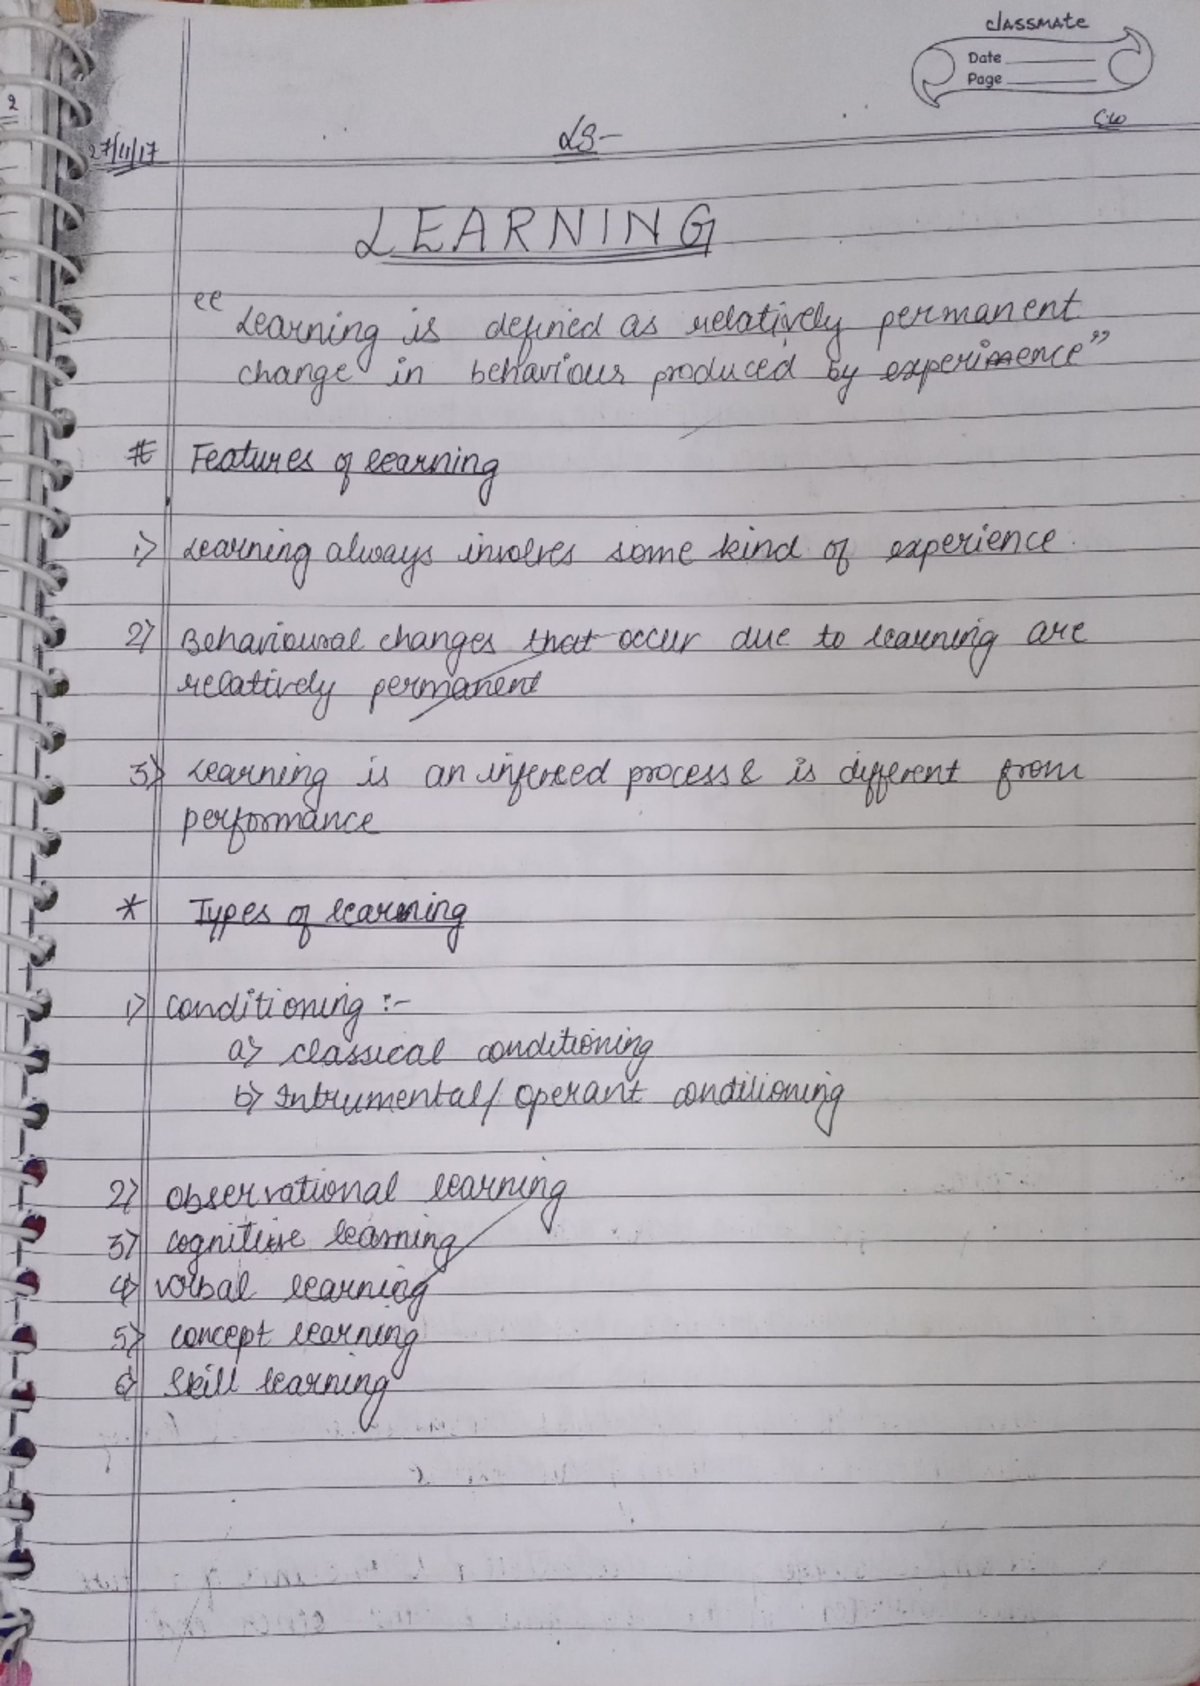 classmate
Date
Page
2
C.W
27/11/17
LS-
LEARNING
"Learning is defined as relatively permanent
change in behaviours produced by experience"
# Features of learning
1) Learning always involves some kind of experience.
2) Behavioural changes that occur due to learning are
relatively permanent
3) Learning is an infered process & is different from
performance
* Types of learning
1) Conditioning :-
a) classical conditioning
b) Intrumental/ operant conditioning
2) observational learning
3) cognitive learning
4) verbal learning
5) concept learning
6) Skill learning